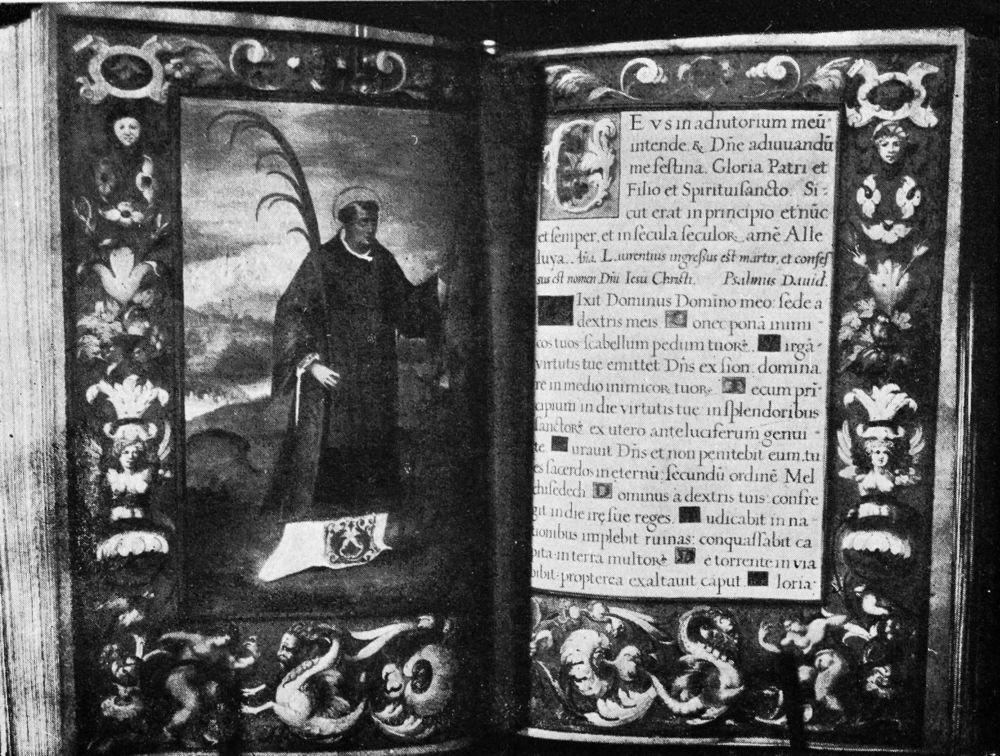 EVS in adiutorium meū
intende. & Dñe adiuuandū
me festina. Gloria Patri et
Filio et Spiritui sancto. Si-
cut erat in principio et nūc
et semper, et in secula seculoꝝ. amē Alle
luya. Aña. Laurentius ingressus est martir, et confes
sus est nomen Dñi Iesu Christi. Psalmus Dauid.
Ixit Dominus Domino meo: sede a
dextris meis. Donec ponā inimi-
cos tuos scabellum pedum tuoꝝ. Virgā
virtutis tue emittet Dñs ex sion: domina
re in medio inimicoꝝ tuoꝝ. Tecum pri
cipium in die virtutis tue in splendoribus
sanctoꝝ: ex utero ante luciferum genui
te. Iurauit Dñs et non penitebit eum, tu
es sacerdos in eternū: secundū ordinē Mel
chisedech. Dominus a dextris tuis: confre
git in die irę sue reges. Iudicabit in na-
tionibus implebit ruinas: conquassabit ca
pita in terra multoꝝ. De torrente in via
bibit: propterea exaltauit caput. loria